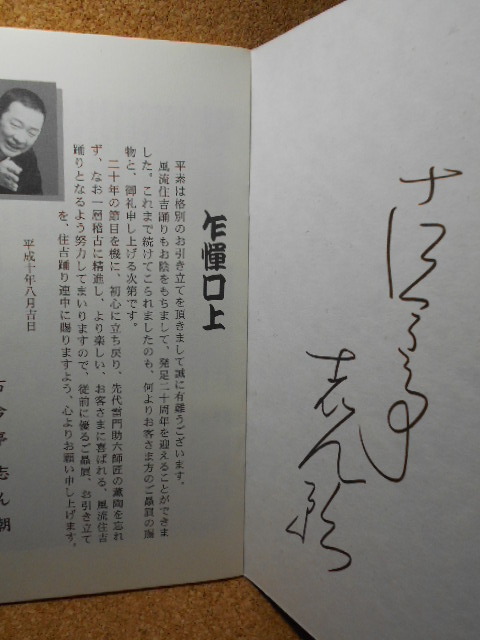 古今亭
志ん朝
乍憚口上
平素は格別のお引き立てを頂きまして誠に有難うございます。
風流住吉踊りもお陰をもちまして、発足二十周年を迎えることができま
した。これまで続けてこられましたのも、何よりお客さま方のご贔屓の賜
物と、御礼申し上げる次第です。
二十年の節目を機に、初心に立ち戻り、先代雷門助六師匠の薫陶を忘れ
ず、なお一層稽古に精進し、より楽しい、お客さまに喜ばれる、風流住吉
踊りとなるよう努力してまいりますので、従前に優るご贔屓、お引き立て
を、住吉踊り連中に賜りますよう、心よりお願い申し上げます。
平成十年八月吉日
古今亭 志ん朝